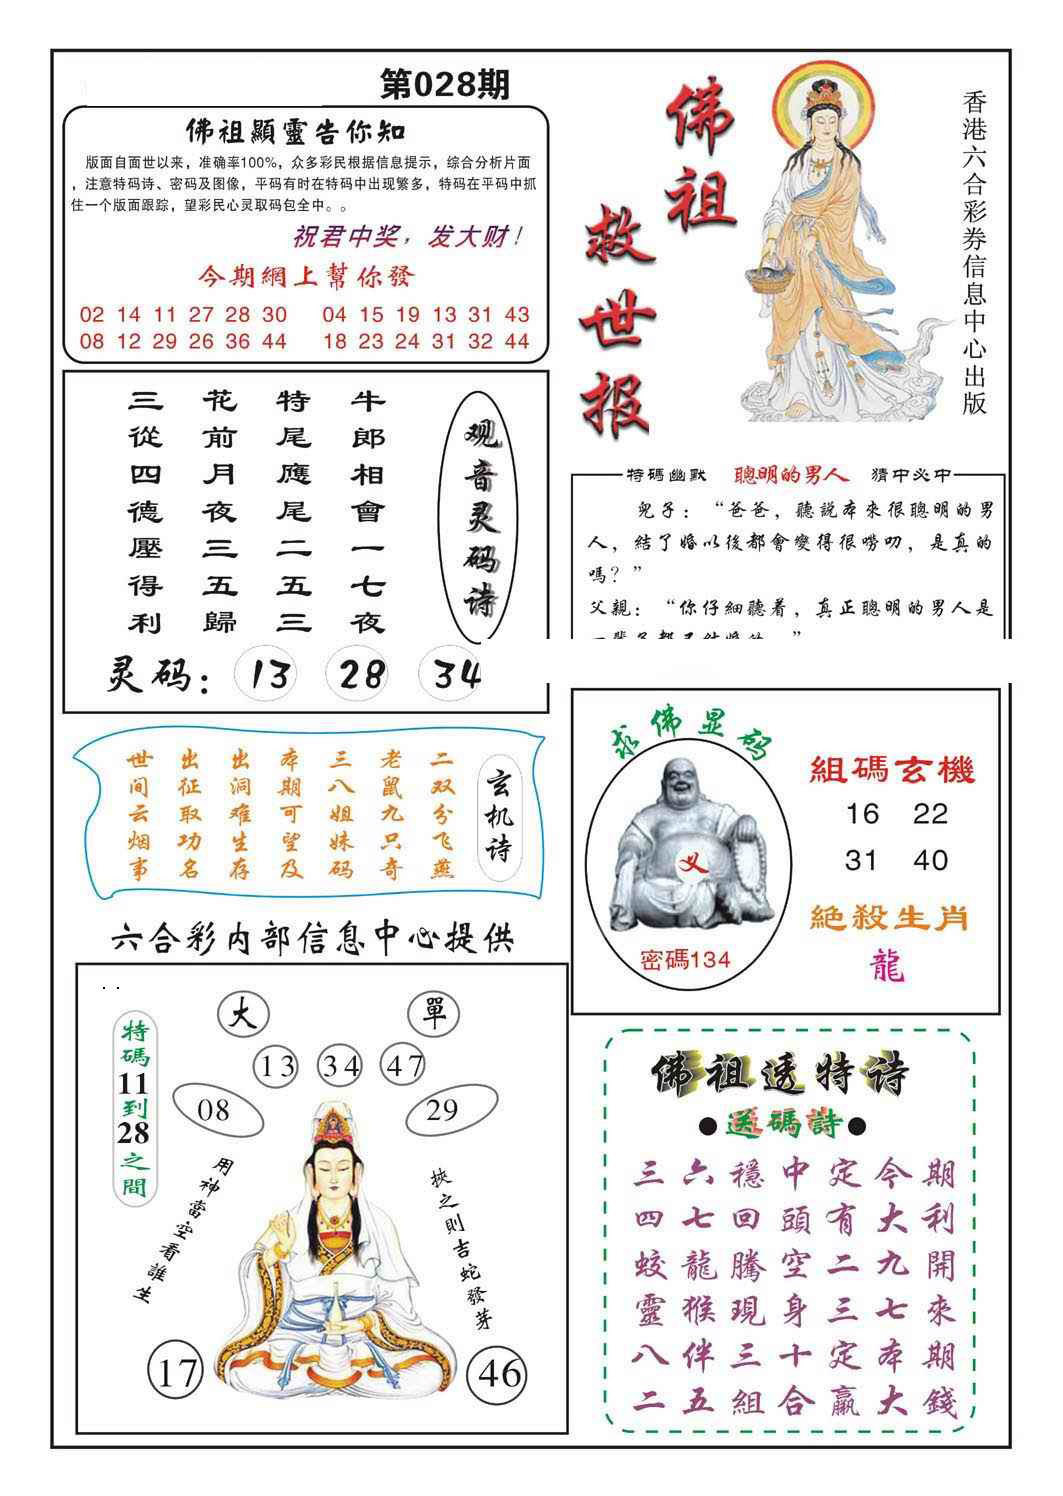 第028期
佛祖顯靈告你知
版面自面世以来，准确率100%，众多彩民根据信息提示，综合分析片面
，注意特码诗、密码及图像，平码有时在特码中出现繁多，特码在平码中抓
住一个版面跟踪，望彩民心灵取码包全中。。
祝君中奖，发大财！
今期網上幫你發
02 14 11 27 28 30 04 15 19 13 31 43
08 12 29 26 36 44 18 23 24 31 32 44
佛祖
救世报
香港六合彩券信息中心出版
观音灵码诗
牛郎相會一七夜
特尾應尾二五三
花前月夜三五歸
三從四德壓得利
灵码： 13 28 34
特碼幽默 聰明的男人 猜中必中
兒子：“爸爸，聽説本來很聰明的男
人，結了婚以後都會變得很嘮叨，是真的
嗎？”
父親：“你仔細聽着，真正聰明的男人是
玄机诗
二双分飞燕
老鼠九只奇
三八姐妹码
本期可望及
出洞难生存
出征取功名
世间云烟事
求佛显码
义
密碼134
組碼玄機
16 22
31 40
絕殺生肖
龍
六合彩内部信息中心提供
特碼11到28之間
大 單
13 34 47
08 29
用神當空看誰生
挾之則吉蛇發芽
17 46
佛祖透特诗
●送碼詩●
三六穩中定今期
四七回頭有大利
蛟龍騰空二九開
靈猴現身三七來
八伴三十定本期
二五組合贏大錢